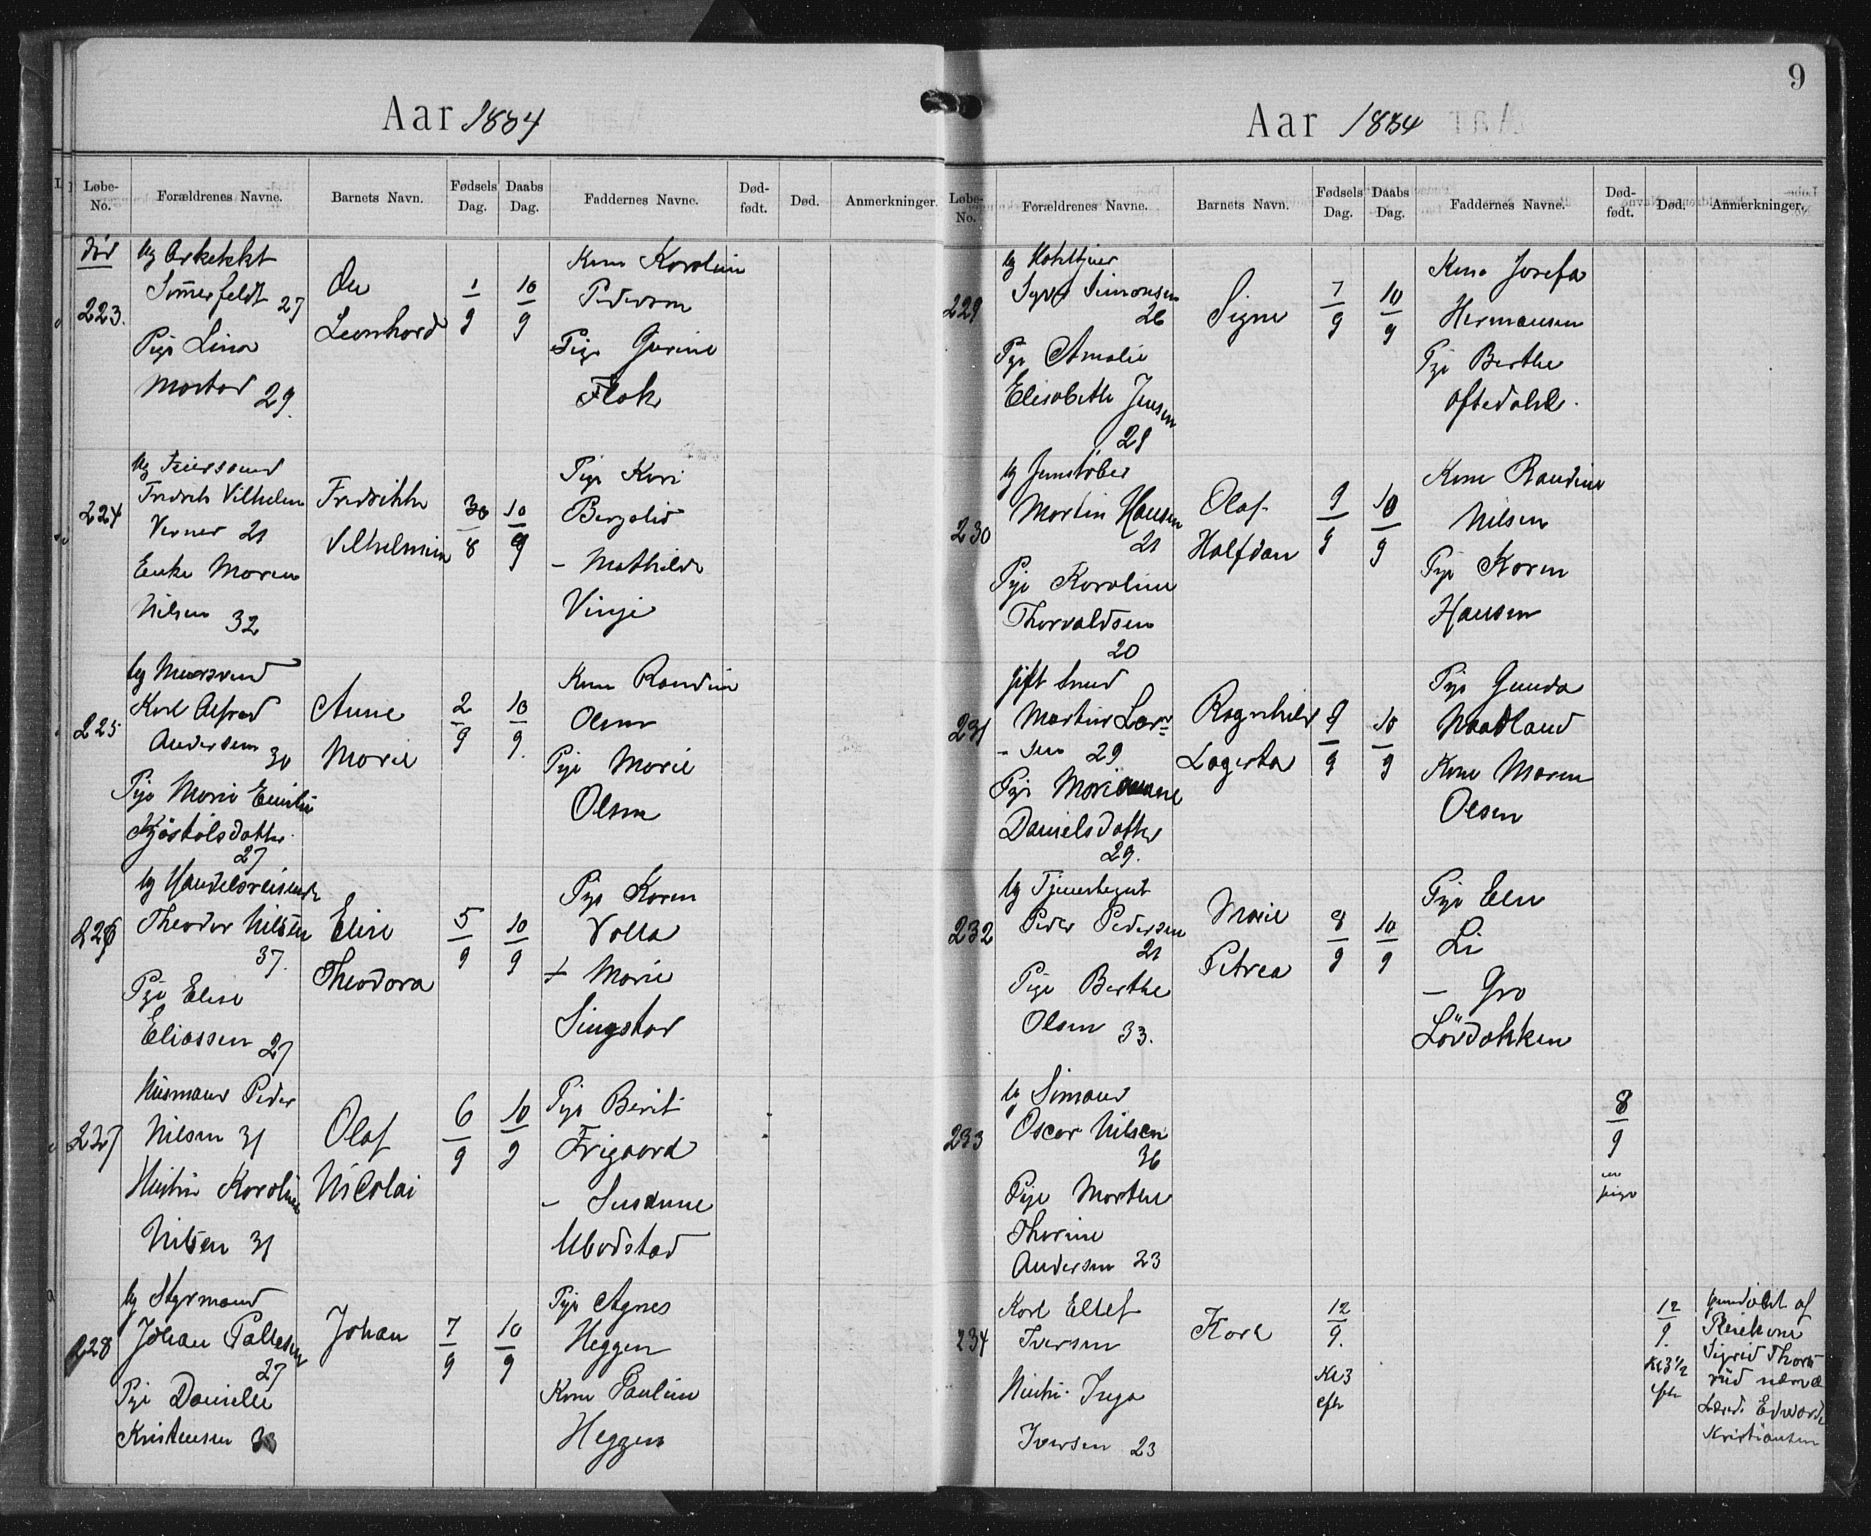 Aar 1884
Løbe-No.
Forældrenes Navne.
Barnets Navn.
Fødsels Dag.
Daabs Dag.
Faddernes Navne.
Død-født.
Død.
Anmerkninger.
223.
Ug Arkitekt
Somerfeldt 27
Pige Lina
29.
Leonhard
1/9
10/9
Kone Karoline
Pederson
Pige Gurine
Flok
224
Ug
Fredrik Vilhelm
Verner 21
Enke Maren
Nilsen 32
Fredrikke
Vilhelmine
30/8
10/9
Pige Kari
Bergslid
– Mathilde
Vinje
225
Ug Muursvend
Karl Alfred
Andersen 30
Pige Marie Emilie
Kjøstolsdatter
27
Anne
Marie
2/9
10/9.
Kone Randine
Olsen
Pige Marie
Olsen
226
Ug Handelsreisende
Theodor Nilsen
37.
Pige Elise
Eliassen 27
Elise
Theodora
5/9
10/9
Pige Karen
Volla
+ Marie
Singstad
227
Husmand Peder
Nilsen 31
Hustru Karoline
Nilsen 31
Olaf
Nicolai
6/9
10/9
Pige Berit
Frigaard
– Susanne
Modstad
228
Ug Styrmand
Johan Pallesen
27
Pige Danielle
Kristensen
Johan
7/9
10/9
Pige Agnes
Heggen
Kone Pauline
Heggen
9
Aar 1884
Løbe-No.
Forældrenes Navne.
Barnets Navn.
Fødsels Dag.
Daabs Dag.
Faddernes Navne.
Død-født.
Død.
Anmerkninger.
229
Ug
Simonsen
26
Pige Amalie
Elisabeth Jensen
29
Signe
7/9
10/9
Kone Josefa
Hermansen
Pige Berthe
Oftedahl.
230
Ug Jernstøber
Martin Hansen
21
Pige Karoline
Thorvaldsen
20
Olaf
Halfdan
9/9
10/9
Kone Randine
Nilsen
Pige Karen
Hansen
231
Gift Smed
Martin Lar=
– sen 29
Pige Marianne
Danielsdatter
29.
Ragnhild
Lagerta
9/9
10/9
Pige Gunda
Waadland
Kone Maren
Olsen
232
Ug Tjenestegut
Peder Pedersen
21
Pige Berthe
Olsen 33.
Marie
Petrea
8/9
10/9
Pige Elen
Li
– Gro
Lövdokken
233
Ug Sömand
Oscar Nilsen
36
Pige Marthe
Thorine
Andersen 23
8/9
en
pige
234
Karl Ellef
Iversen
Hustru Inga
Iversen 23
Karl
12/9.
Kl 3
efm
12/9.
Kl 3 1/2
efm
af
Sigrid
Edvarda
Kristiansen